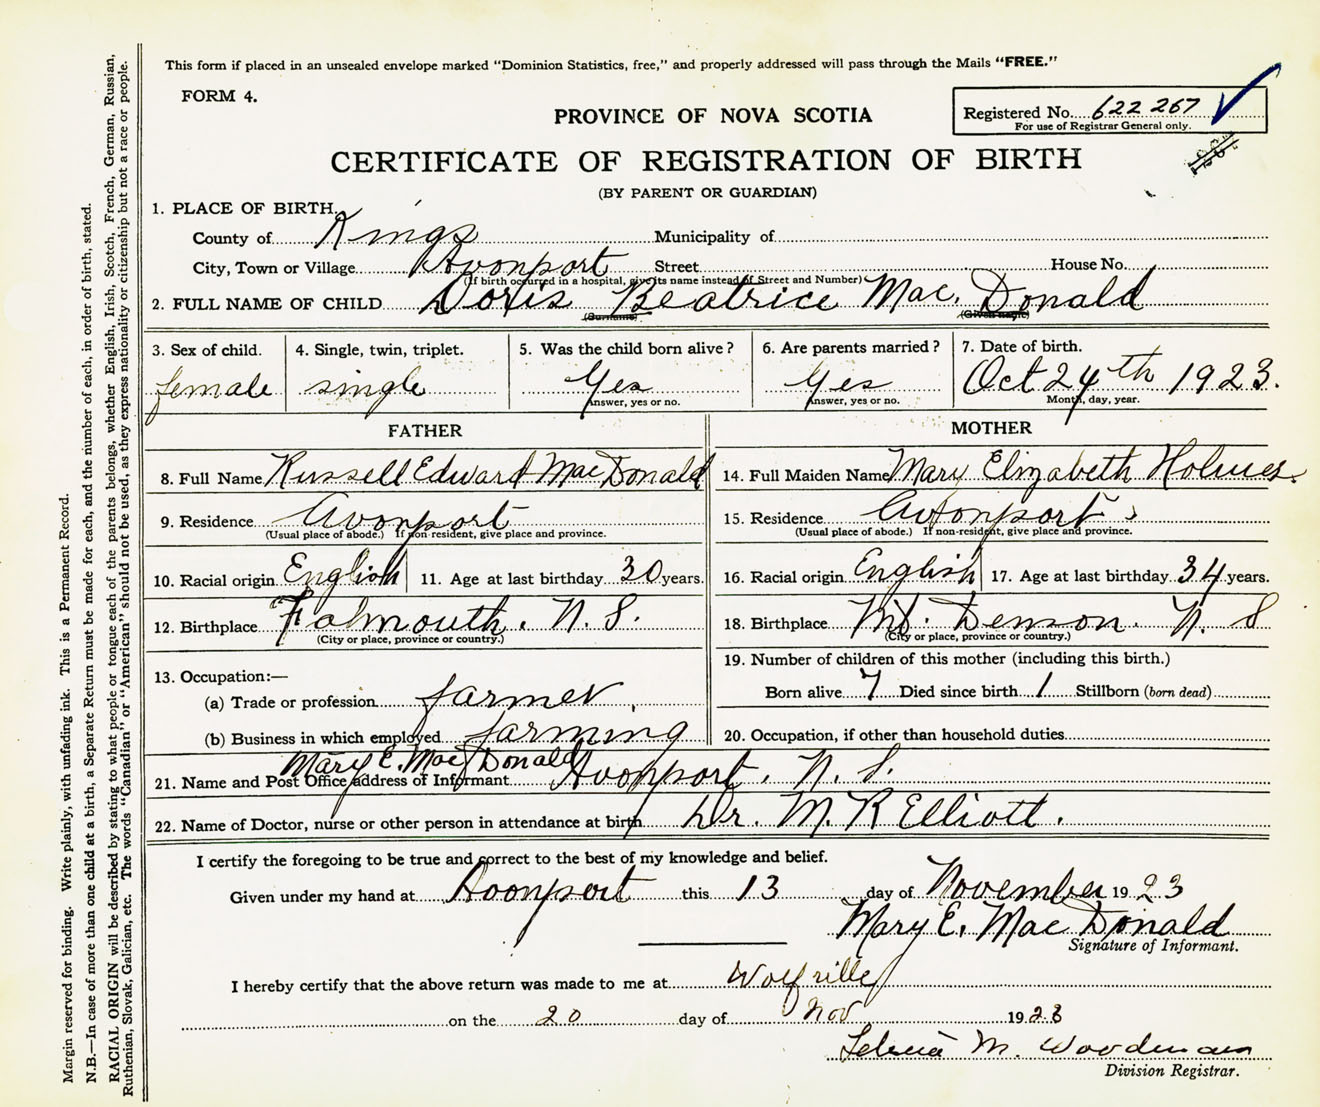 This form if placed in an unsealed envelope marked "Dominion Statistics, free," and properly addressed will pass through the Mails "FREE."
FORM 4.
PROVINCE OF NOVA SCOTIA
Registered No. 622 267
For use of Registrar General only.
CERTIFICATE OF REGISTRATION OF BIRTH
(BY PARENT OR GUARDIAN)
1. PLACE OF BIRTH.
County of Kings Municipality of
City, Town or Village Avonport Street House No.
(If birth occurred in a hospital, give its name instead of Street and Number)
2. FULL NAME OF CHILD Doris Beatrice Mac. Donald
(Surname) (Given name)
3. Sex of child. 4. Single, twin, triplet. 5. Was the child born alive? 6. Are parents married? 7. Date of birth.
female single Yes Yes Oct 24th 1923.
Answer, yes or no. Answer, yes or no. Month, day, year.
FATHER MOTHER
8. Full Name Russell Edward MacDonald 14. Full Maiden Name Mary Elizabeth Holmes.
9. Residence Avonport 15. Residence Avonport
(Usual place of abode.) If non-resident, give place and province. (Usual place of abode.) If non-resident, give place and province.
10. Racial origin English 11. Age at last birthday 30 years. 16. Racial origin English 17. Age at last birthday 34 years.
12. Birthplace Falmouth. N. S. 18. Birthplace Mt. Denson. N. S
(City or place, province or country.) (City or place, province or country.)
13. Occupation:— 19. Number of children of this mother (including this birth.)
(a) Trade or profession farmer Born alive 7 Died since birth 1 Stillborn (born dead)
(b) Business in which employed farming 20. Occupation, if other than household duties
Mary E. MacDonald
21. Name and Post Office address of Informant Avonport. N. S.
22. Name of Doctor, nurse or other person in attendance at birth Dr. M. R Elliott.
I certify the foregoing to be true and correct to the best of my knowledge and belief.
Given under my hand at Avonport this 13 day of November 1923
Mary E. MacDonald
Signature of Informant.
I hereby certify that the above return was made to me at Wolfville
on the 20 day of Nov 1923
M. Woodman
Division Registrar.
Margin reserved for binding. Write plainly, with unfading ink. This is a Permanent Record.
N.B.—In case of more than one child at a birth, a Separate Return must be made for each, and the number of each, in order of birth, stated.
RACIAL ORIGIN will be described by stating to what people or tongue each of the parents belongs, whether English, Irish, Scotch, French, German, Russian,
Ruthenian, Slovak, Galician, etc. The words "Canadian" or "American" should not be used, as they express nationality or citizenship but not a race or people.